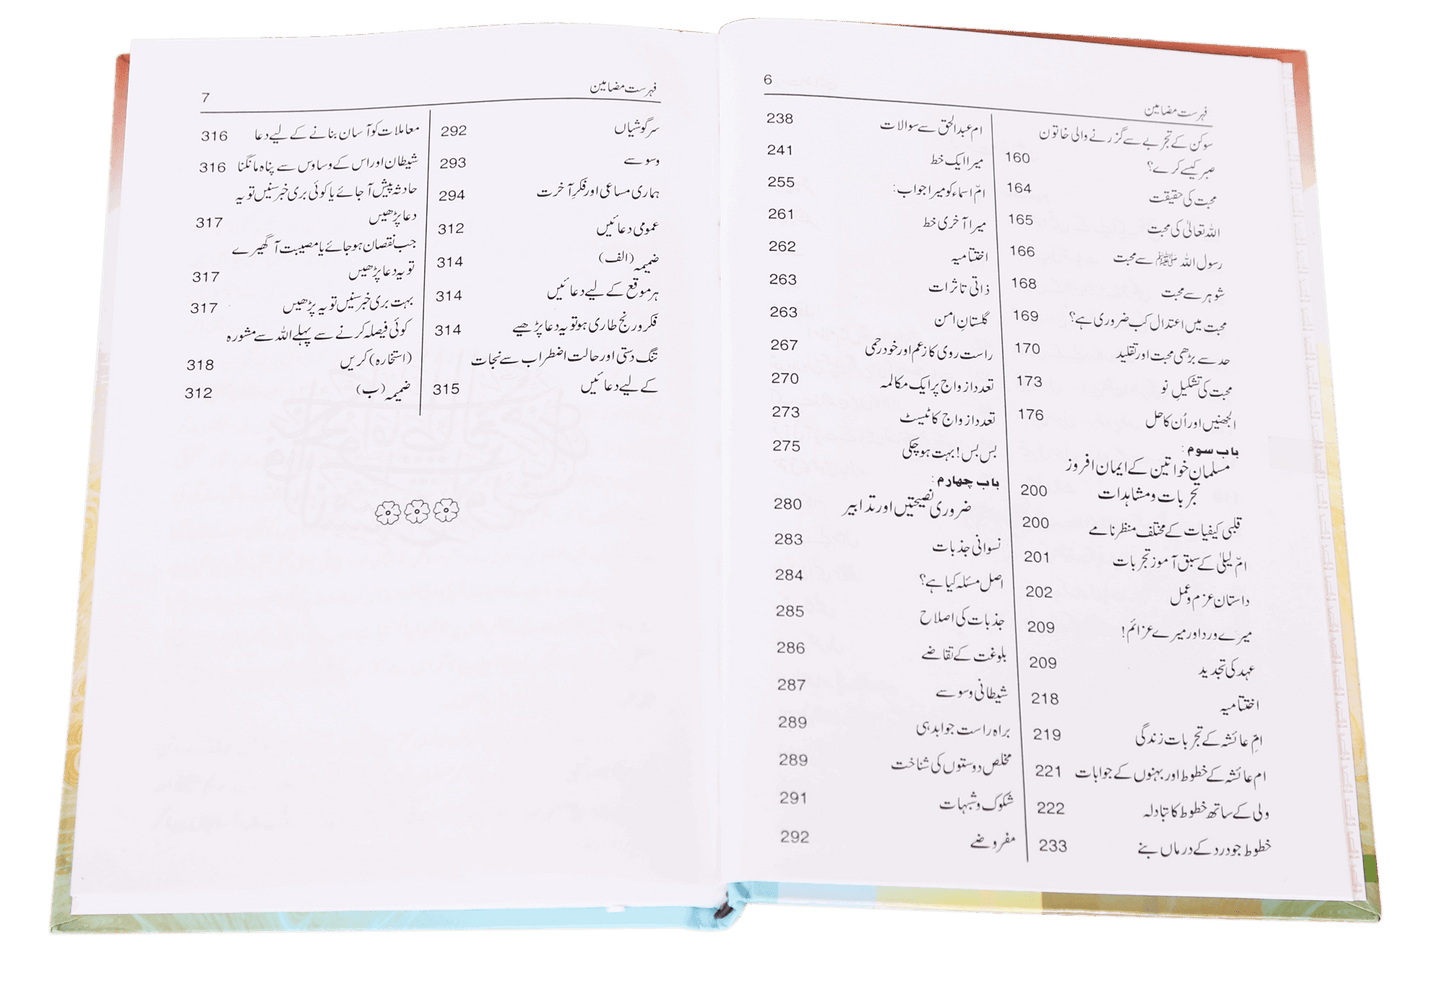 6
فہرست مضامین
سوکن کے تجربے سے گزرنے والی خاتون
صبر کیسے کرے؟ 160
محبت کی حقیقت 164
اللہ تعالیٰ کی محبت 165
رسول اللہ ﷺ سے محبت 166
شوہر سے محبت 168
محبت میں اعتدال کب ضروری ہے؟ 169
حد سے بڑھی محبت اور تقلید 170
محبت کی تشکیلِ نو 173
الجھنیں اور اُن کا حل 176
باب سوم:
مسلمان خواتین کے ایمان افروز
تجربات و مشاہدات 200
قلبی کیفیات کے مختلف منظرنامے 200
امّ لیلیٰ کے سبق آموز تجربات 201
داستان عزم و عمل 202
میرے ورد اور میرے عزائم! 209
عہد کی تجدید 209
اختتامیہ 218
امّ عائشہ کے تجربات زندگی 219
ام عائشہ کے خطوط اور بہنوں کے جوابات 221
ولی کے ساتھ خطوط کا تبادلہ 222
خطوط جو درد کے درماں بنے 233
ام عبدالحق سے سوالات 238
میرا ایک خط 241
امّ اسماء کو میرا جواب: 255
میرا آخری خط 261
اختتامیہ 262
ذاتی تاثرات 263
گلستانِ امن 263
راست روی کا زعم اور خود رحمی 267
تعدد ازواج پر ایک مکالمہ 270
تعدد ازواج کا ٹیسٹ 273
بس بس! بہت ہو چکی 275
باب چہارم:
ضروری نصیحتیں اور تدابیر 280
نسوانی جذبات 283
اصل مسئلہ کیا ہے؟ 284
جذبات کی اصلاح 285
بلوغت کے تقاضے 286
شیطانی وسوسے 287
براہ راست جوابدہی 289
مخلص دوستوں کی شناخت 289
شکوک و شبہات 291
مفروضے 292
7
فہرست مضامین
سرگوشیاں 292
وسوسے 293
ہماری مساعی اور فکرِ آخرت 294
عمومی دعائیں 312
ضمیمہ (الف) 314
ہر موقع کے لیے دعائیں 314
فکر و رنج طاری ہو تو یہ دعا پڑھیے 314
تنگ دستی اور حالت اضطراب سے نجات
کے لیے دعائیں 315
معاملات کو آسان بنانے کے لیے دعا 316
شیطان اور اس کے وساوس سے پناہ مانگنا 316
حادثہ پیش آ جائے یا کوئی بری خبر سنیں تو یہ
دعا پڑھیں 317
جب نقصان ہو جائے یا مصیبت آ گھیرے
تو یہ دعا پڑھیں 317
بہت بری خبر سنیں تو یہ پڑھیں 317
کوئی فیصلہ کرنے سے پہلے اللہ سے مشورہ
(استخارہ) کریں 318
ضمیمہ (ب) 312